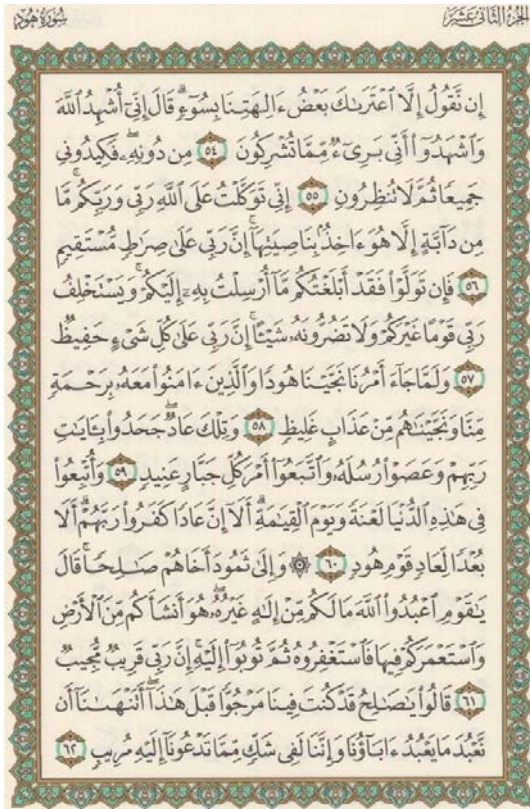 الجزء الثاني عشر
سورة هود
إِن نَّقُولُ إِلَّا ٱعْتَرَىٰكَ بَعْضُ ءَالِهَتِنَا بِسُوٓءٍ ۗ قَالَ إِنِّىٓ أُشْهِدُ ٱللَّهَ
وَٱشْهَدُوٓا۟ أَنِّى بَرِىٓءٌ مِّمَّا تُشْرِكُونَ ٥٤ مِن دُونِهِۦ ۖ فَكِيدُونِى
جَمِيعًا ثُمَّ لَا تُنظِرُونِ ٥٥ إِنِّى تَوَكَّلْتُ عَلَى ٱللَّهِ رَبِّى وَرَبِّكُم ۚ مَّا
مِن دَآبَّةٍ إِلَّا هُوَ ءَاخِذٌۢ بِنَاصِيَتِهَآ ۚ إِنَّ رَبِّى عَلَىٰ صِرَٰطٍ مُّسْتَقِيمٍ
٥٦ فَإِن تَوَلَّوْا۟ فَقَدْ أَبْلَغْتُكُم مَّآ أُرْسِلْتُ بِهِۦٓ إِلَيْكُمْ ۚ وَيَسْتَخْلِفُ
رَبِّى قَوْمًا غَيْرَكُمْ وَلَا تَضُرُّونَهُۥ شَيْـًٔا ۚ إِنَّ رَبِّى عَلَىٰ كُلِّ شَىْءٍ حَفِيظٌ
٥٧ وَلَمَّا جَآءَ أَمْرُنَا نَجَّيْنَا هُودًا وَٱلَّذِينَ ءَامَنُوا۟ مَعَهُۥ بِرَحْمَةٍ
مِّنَّا وَنَجَّيْنَٰهُم مِّنْ عَذَابٍ غَلِيظٍ ٥٨ وَتِلْكَ عَادٌ ۖ جَحَدُوا۟ بِـَٔايَٰتِ
رَبِّهِمْ وَعَصَوْا۟ رُسُلَهُۥ وَٱتَّبَعُوٓا۟ أَمْرَ كُلِّ جَبَّارٍ عَنِيدٍ ٥٩ وَأُتْبِعُوا۟
فِى هَٰذِهِ ٱلدُّنْيَا لَعْنَةً وَيَوْمَ ٱلْقِيَٰمَةِ ۗ أَلَآ إِنَّ عَادًا كَفَرُوا۟ رَبَّهُمْ ۗ أَلَا
بُعْدًا لِّعَادٍ قَوْمِ هُودٍ ٦٠ ۞ وَإِلَىٰ ثَمُودَ أَخَاهُمْ صَٰلِحًا ۚ قَالَ
يَٰقَوْمِ ٱعْبُدُوا۟ ٱللَّهَ مَا لَكُم مِّنْ إِلَٰهٍ غَيْرُهُۥ ۖ هُوَ أَنشَأَكُم مِّنَ ٱلْأَرْضِ
وَٱسْتَعْمَرَكُمْ فِيهَا فَٱسْتَغْفِرُوهُ ثُمَّ تُوبُوٓا۟ إِلَيْهِ ۚ إِنَّ رَبِّى قَرِيبٌ مُّجِيبٌ
٦١ قَالُوا۟ يَٰصَٰلِحُ قَدْ كُنتَ فِينَا مَرْجُوًّا قَبْلَ هَٰذَآ ۖ أَتَنْهَىٰنَآ أَن
نَّعْبُدَ مَا يَعْبُدُ ءَابَآؤُنَا وَإِنَّنَا لَفِى شَكٍّ مِّمَّا تَدْعُونَآ إِلَيْهِ مُرِيبٍ ٦٢